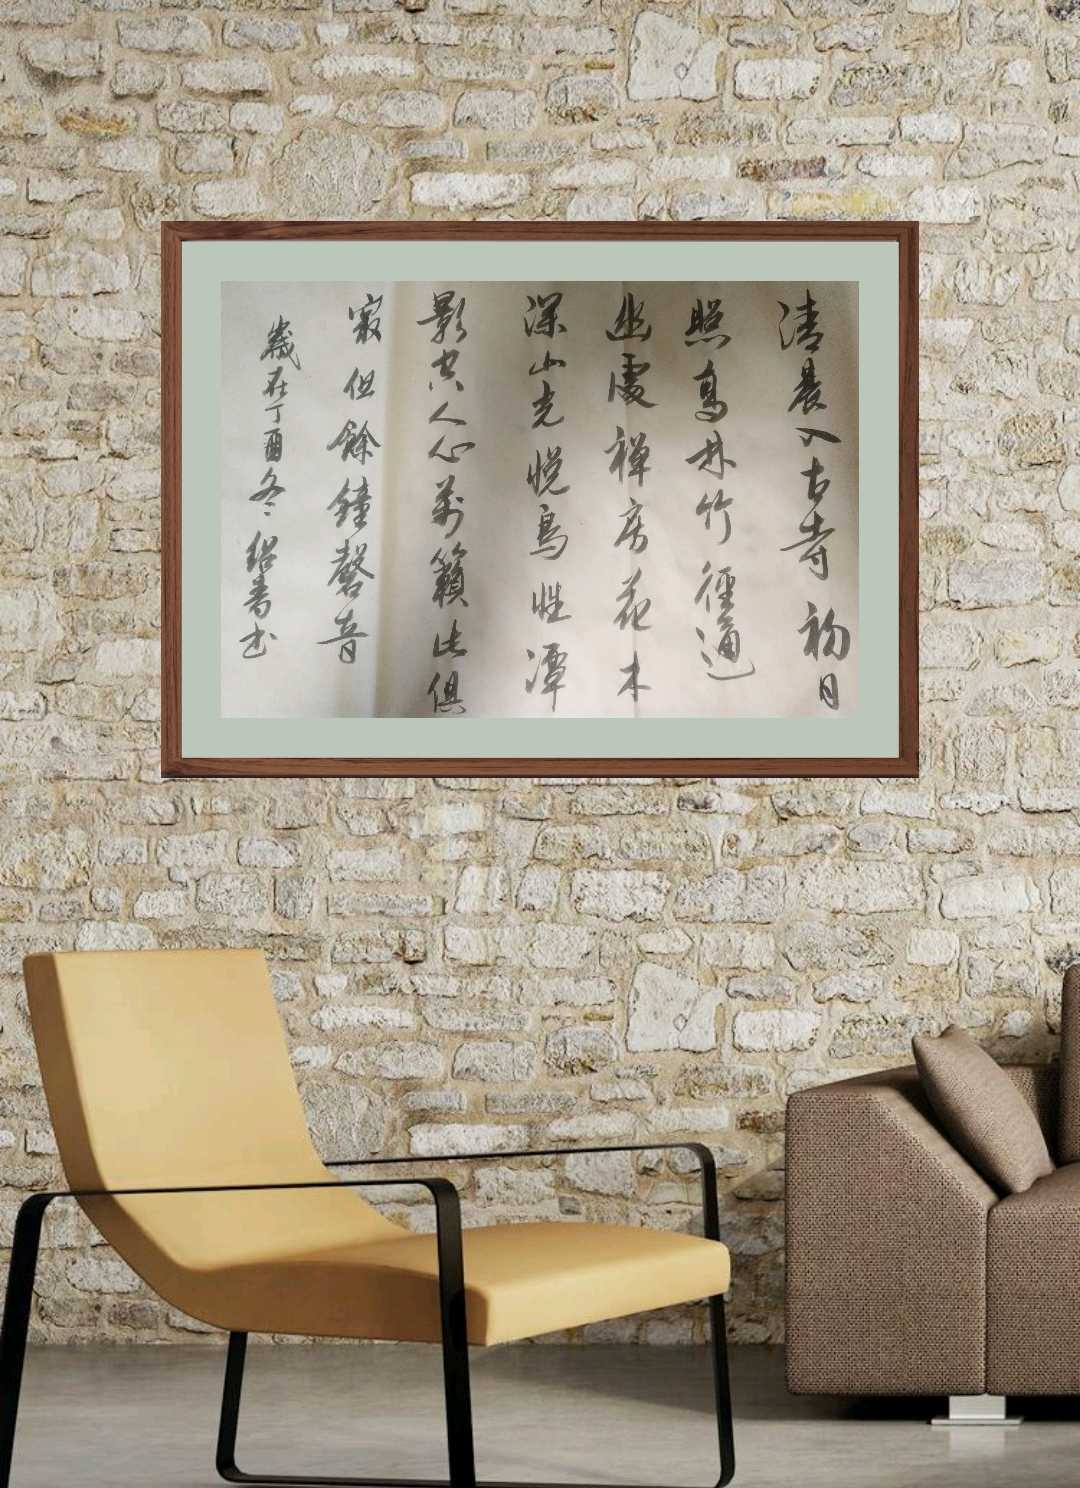 清晨入古寺初日
照高林竹徑通
幽處禅房花木
深山光悦鳥性潭
影空人心萬籟此俱
寂但餘鐘磬音
歲在丁酉冬紹书